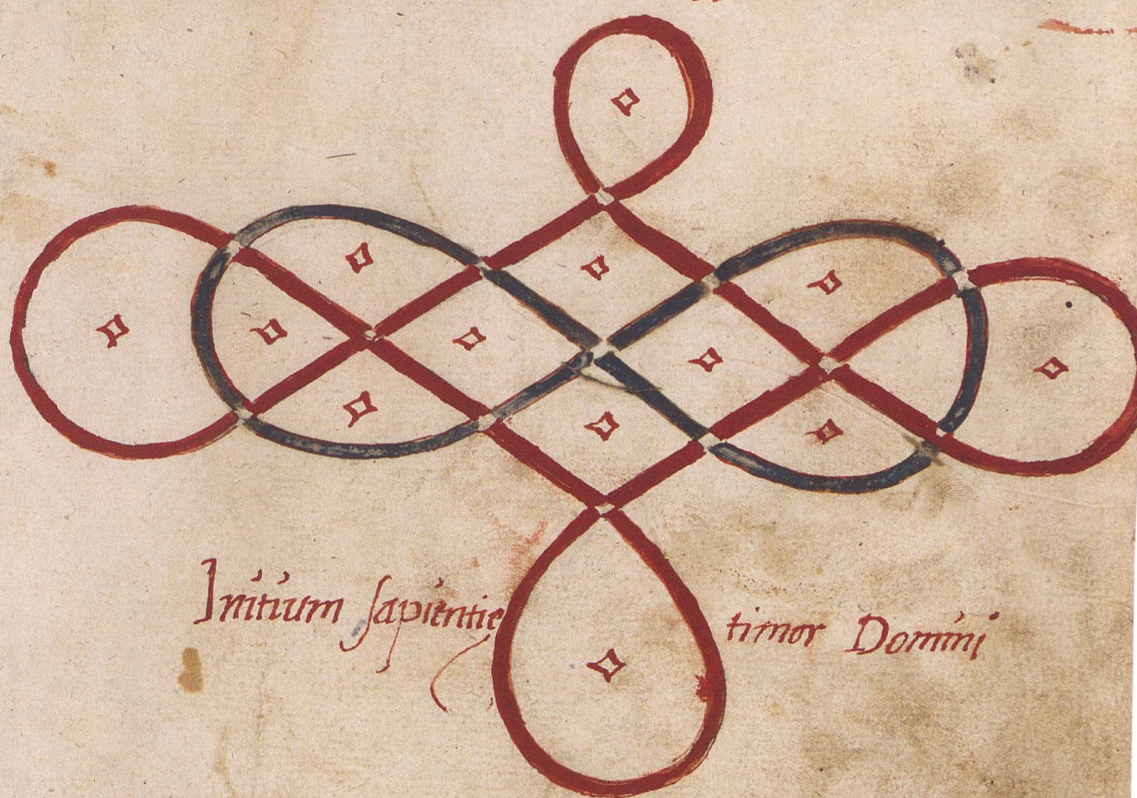 Initium sapientie timor Domini